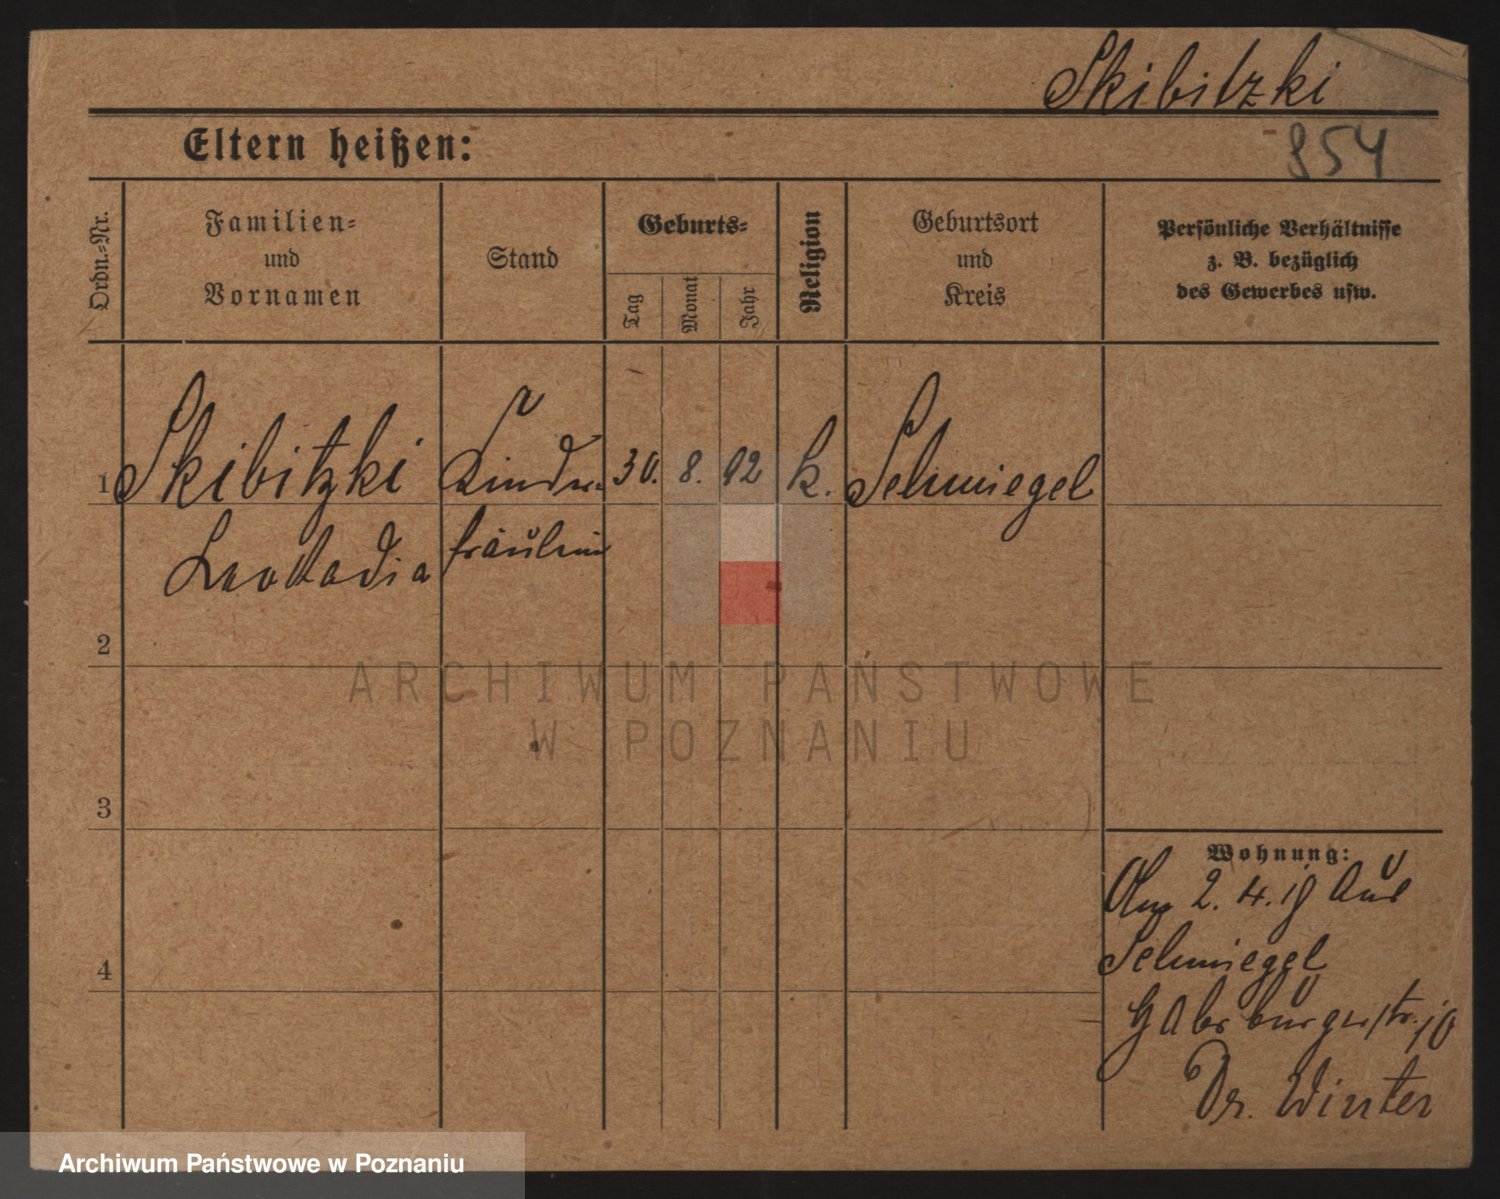 Skibitzki
Eltern heißen:
854
Ordn.-Nr.
Familien-
und
Vornamen
Stand
Geburts-
Tag
Monat
Jahr
Religion
Geburtsort
und
Kreis
Persönliche Verhältnisse
z. B. bezüglich
des Gewerbes usw.
1 Skibitzki Kinder- 30. 8. 92 k. Schmiegel
Leokadia fräulein
2
3
4
Wohnung:
Am 2. 4. 19 aus
Schmiegel
Habsburgerstr. 10
Dr. Winter
ARCHIWUM PAŃSTWOWE
W POZNANIU
Archiwum Państwowe w Poznaniu